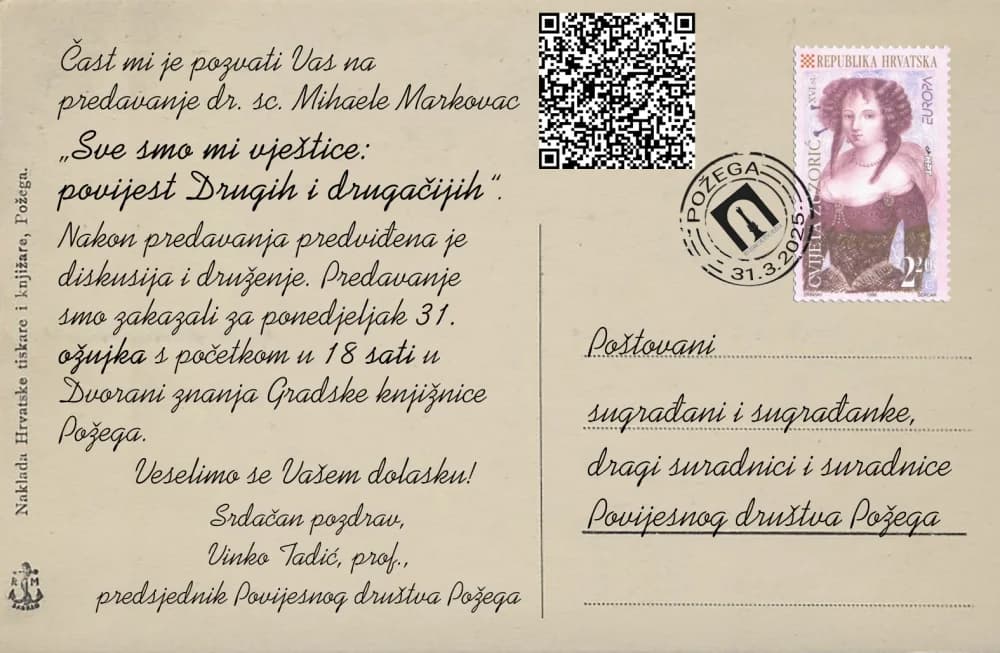 Čast mi je pozvati Vas na
predavanje dr. sc. Mihaele Markovac
„Sve smo mi vještice:
povijest Drugih i drugačijih“.
Nakon predavanja predviđena je
diskusija i druženje. Predavanje
smo zakazali za ponedjeljak 31.
ožujka s početkom u 18 sati u
Dvorani znanja Gradske knjižnice
Požega.
Veselimo se Vašem dolasku!
Srdačan pozdrav,
Vinko Tadić, prof.,
predsjednik Povijesnog društva Požega
Naklada Hrvatske tiskare i knjižare, Požega.
R M
POŽEGA
31.3.2025.
REPUBLIKA HRVATSKA
CVIJETA ZUZORIĆ
XVI.st.
EUROPA
220
Poštovani
sugrađani i sugrađanke,
dragi suradnici i suradnice
Povijesnog društva Požega